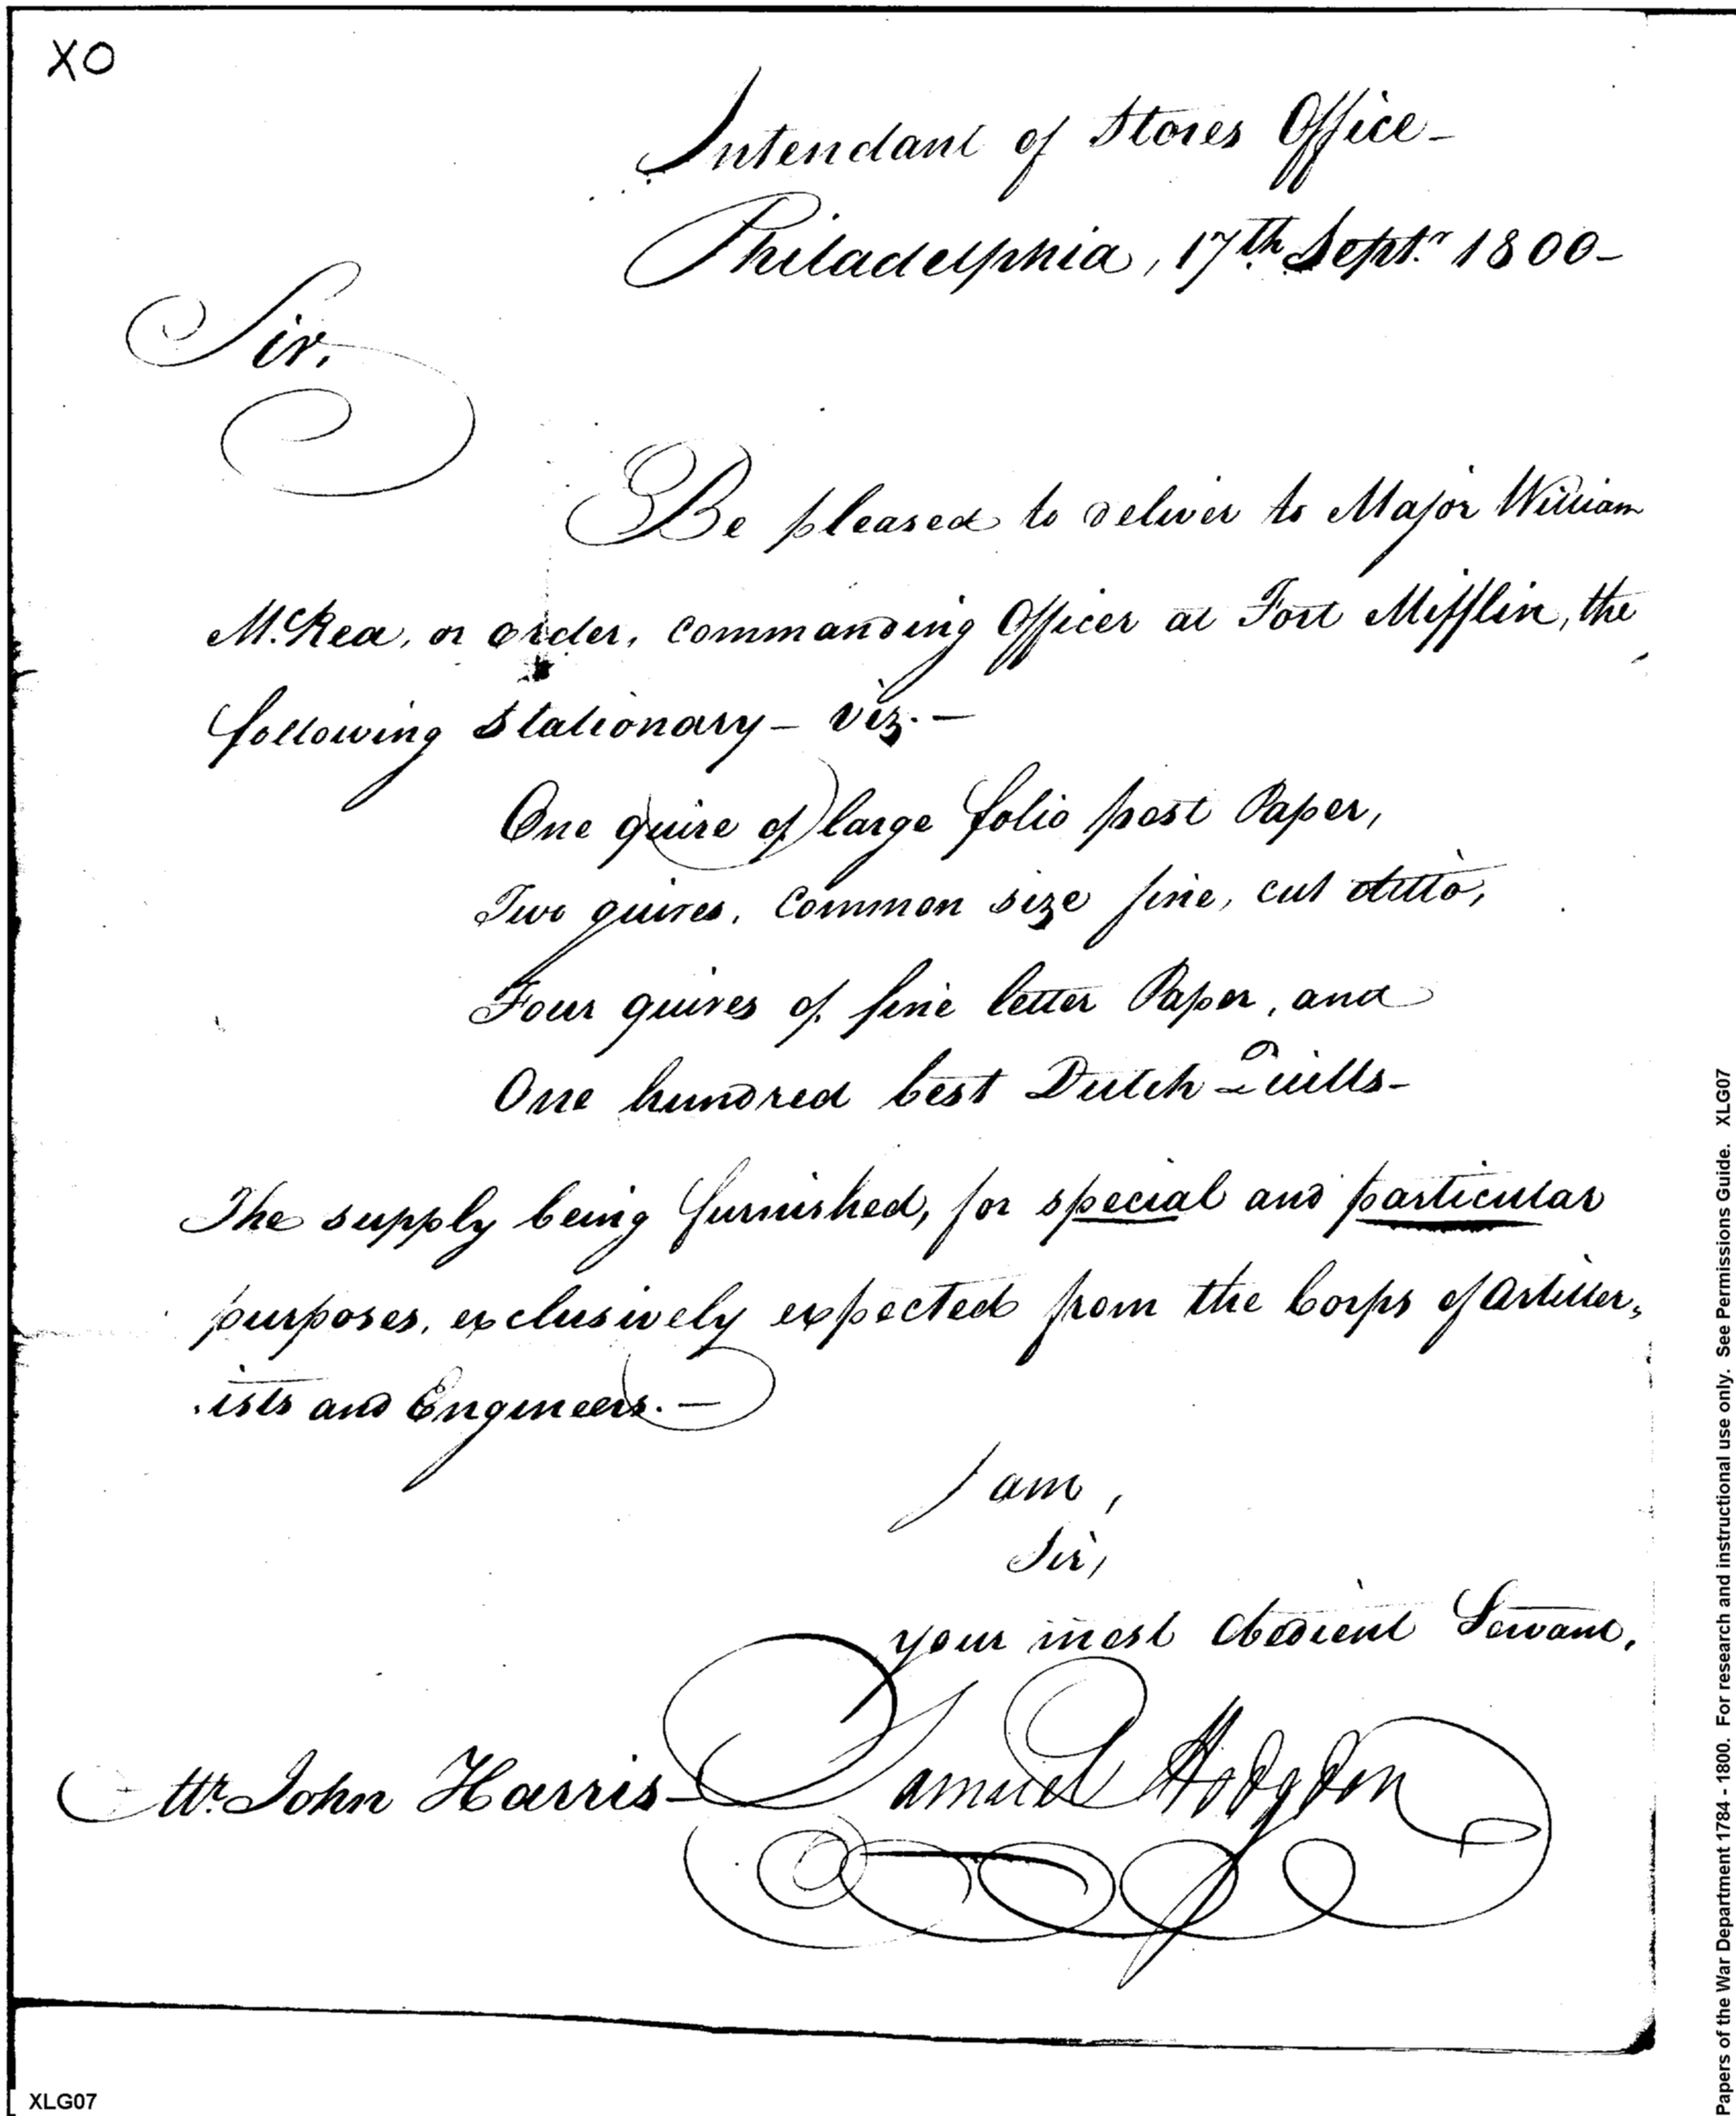 XO
Intendant of Stores Office-
Philadelphia, 17th Septr. 1800-
Sir,
Be pleased to deliver to Major William
McRea, or order, commanding Officer at Fort Mifflin, the
following Stationary - viz. -
One quire of large folio post Paper,
Two quires, common size fine, cut ditto,
Four quires of fine letter Paper, and
One hundred best Dutch Quills-
The supply being furnished, for special and particular
purposes, exclusively expected from the Corps of Artiller=
=ists and Engineers. -
I am,
Sir,
your most obedient Servant,
Samuel Hodgdon
Mr. John Harris-
XLG07
Papers of the War Department 1784 - 1800. For research and instructional use only. See Permissions Guide. XLG07